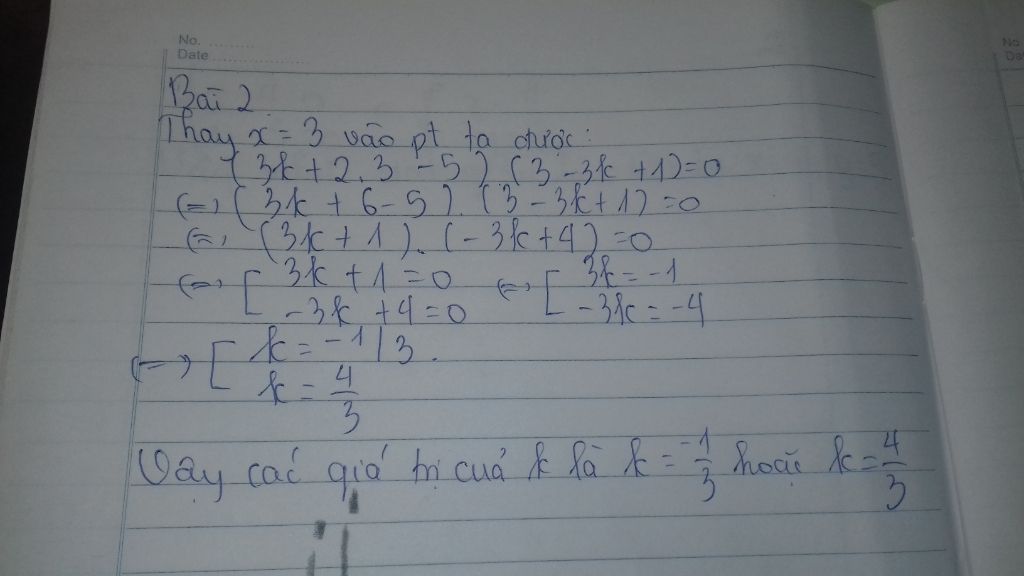 No. ..........
Date ....................
No
Da
Bài 2
Thay x = 3 vào pt ta được:
(3k + 2.3 - 5) (3 - 3k + 1) = 0
(=) (3k + 6 - 5). (3 - 3k + 1) = 0
(=) (3k + 1). (-3k + 4) = 0
(=) [ 3k + 1 = 0 (=) [ 3k = -1
-3k + 4 = 0 -3k = -4
(=) [ k = -1/3.
k = 4/3
Vậy các giá trị của k là k = -1/3 hoặc k = 4/3